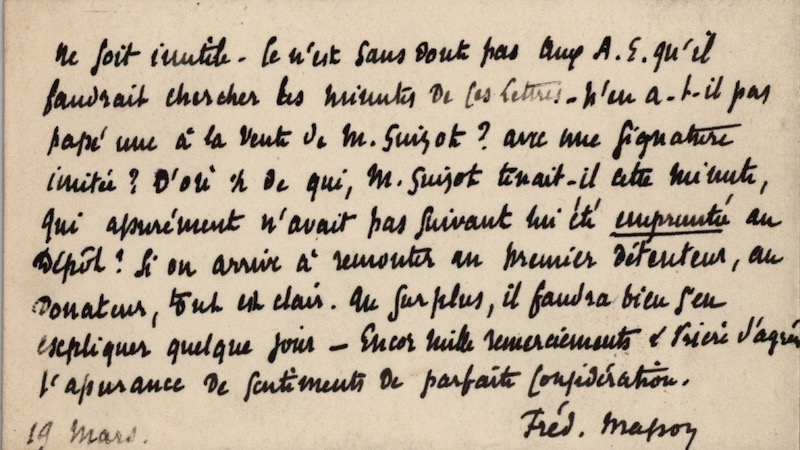 ne soit inutile - Ce n'est sans doute pas aux A. E. qu'il
faudrait chercher les minutes de ces lettres - N'en a-t-il pas
passé une à la vente de M. Guizot ? avec une signature
imitée ? D'où & de qui, M. Guizot tenait-il cette minute,
qui assurément n'avait pas suivant lui été empruntée au
Dépôt ? Si on arrive à remonter au premier détenteur, au
Donateur, tout est clair. Au surplus, il faudra bien s'en
expliquer quelque jour - Encor mille remerciements & Prière d'agréer
l'assurance de sentiments de parfaite considération.
Fréd. Masson
19 Mars.